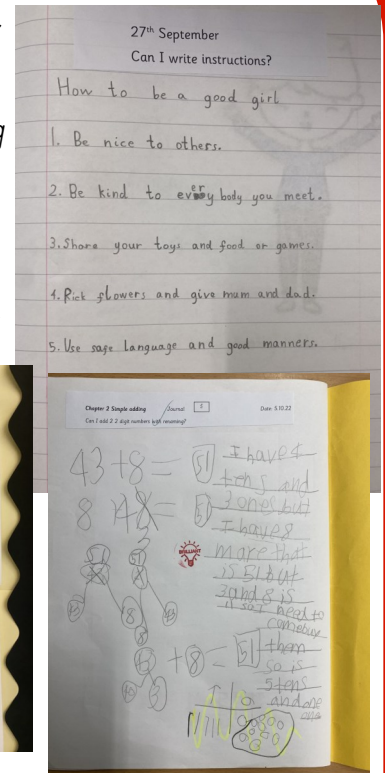 27th September
Can I write instructions?
How to be a good girl
1. Be nice to others.
2. Be kind to every body you meet.
3. Share your toys and food or games.
4. Pick flowers and give mum and dad.
5. Use safe language and good manners.
Chapter 2 Simple adding Journal 2 Date 5.10.22
Can I add 2 2 digit numbers with renaming?
43 + 8 = 51
I have 4
tens and
3 ones but
I have 8
more that
is 51 but
3 and 8 is
11 so I need to
them
so is
5 tens
and one
BRILLIANT
+ 8 = 51